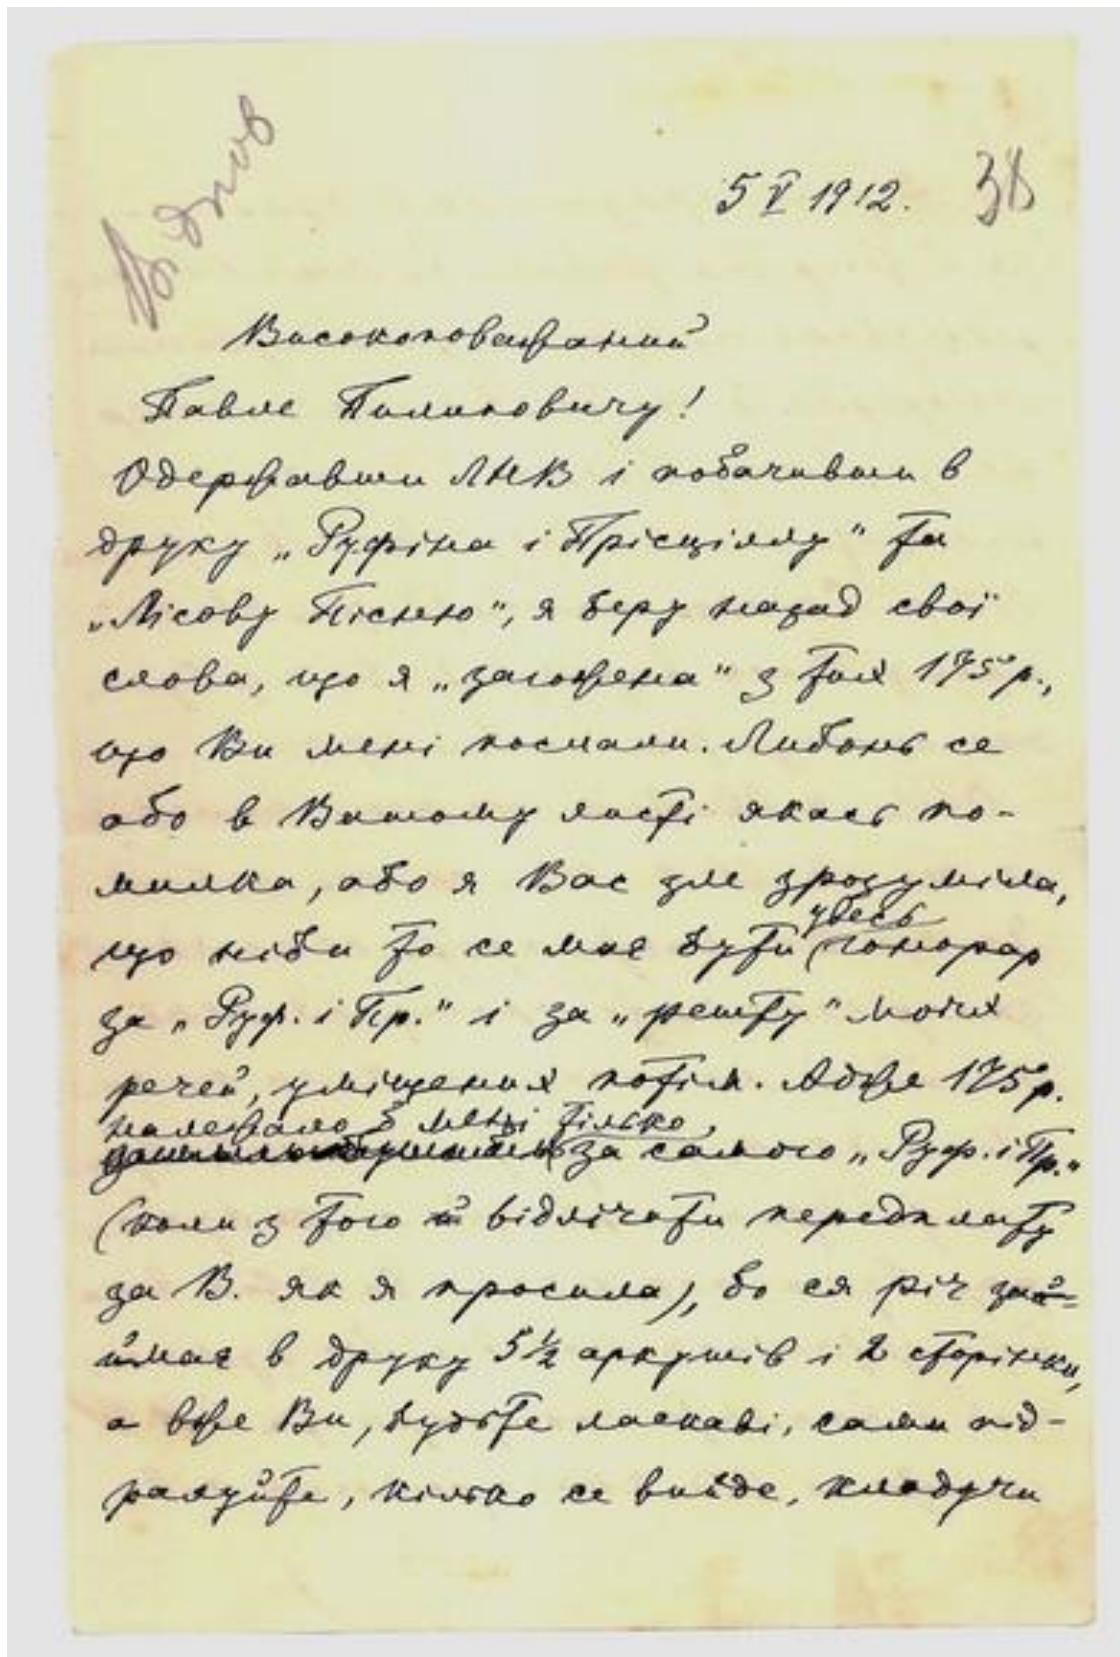 Відпов
5 V 1912.
38
Високоповажаний
Павле Пилиповичу!
Одержавши ЛНВ і побачивши в
друку „Руфіна і Прісціллу" та
„Лісову Пісню", я беру назад свої
слова, що я „загожена" з тих 175 р.,
що Ви мені послали. Либонь се
або в Вашому листі якась по-
милка, або я Вас зле зрозуміла,
що ніби то се має бути увесь гонорар
за „Руф. і Пр." і за „решту" моїх
речей, уміщених потім. Адже 175 р.
належало б мені тілько,
за самого „Руф. і Пр."
(коли з того й відлічати передплату
за В. як я просила), бо ся річ за-
ймає в друку 5 ½ аркушів і 2 сторінки,
а вже Ви, будьте ласкаві, сами під-
рахуйте, кілько се вийде, кладучи